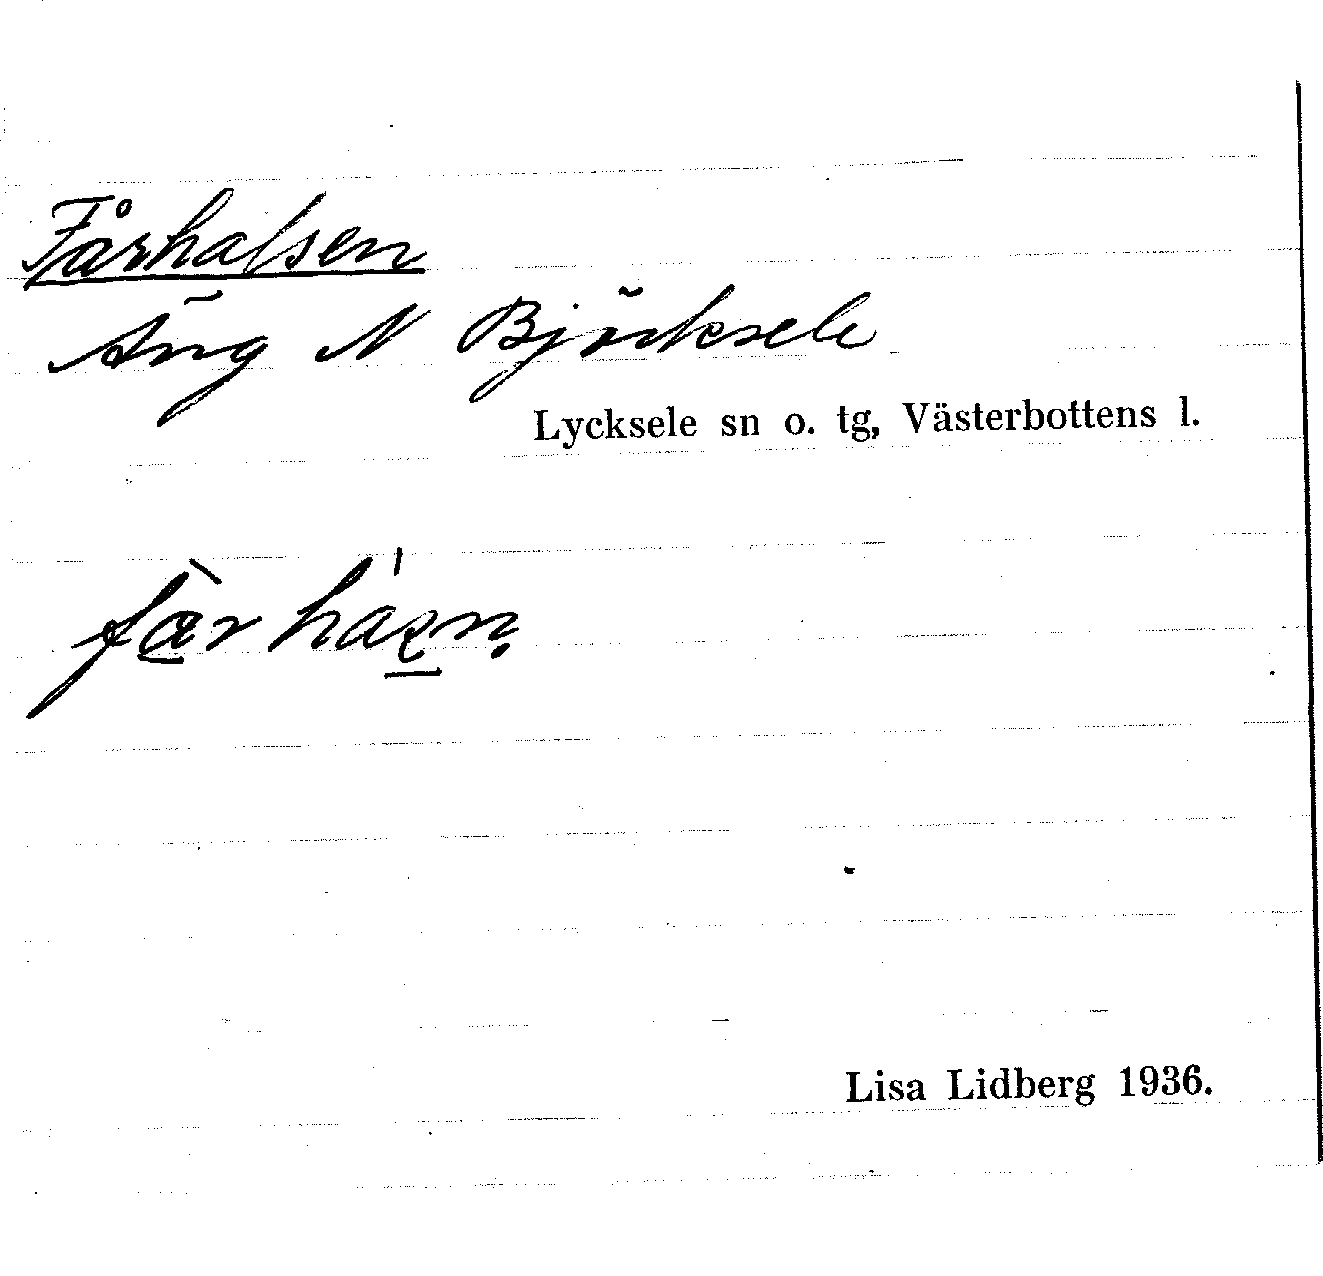 Fårhalsen
Äng N Björksele
Lycksele sn o. tg, Västerbottens l.
Lisa Lidberg 1936.